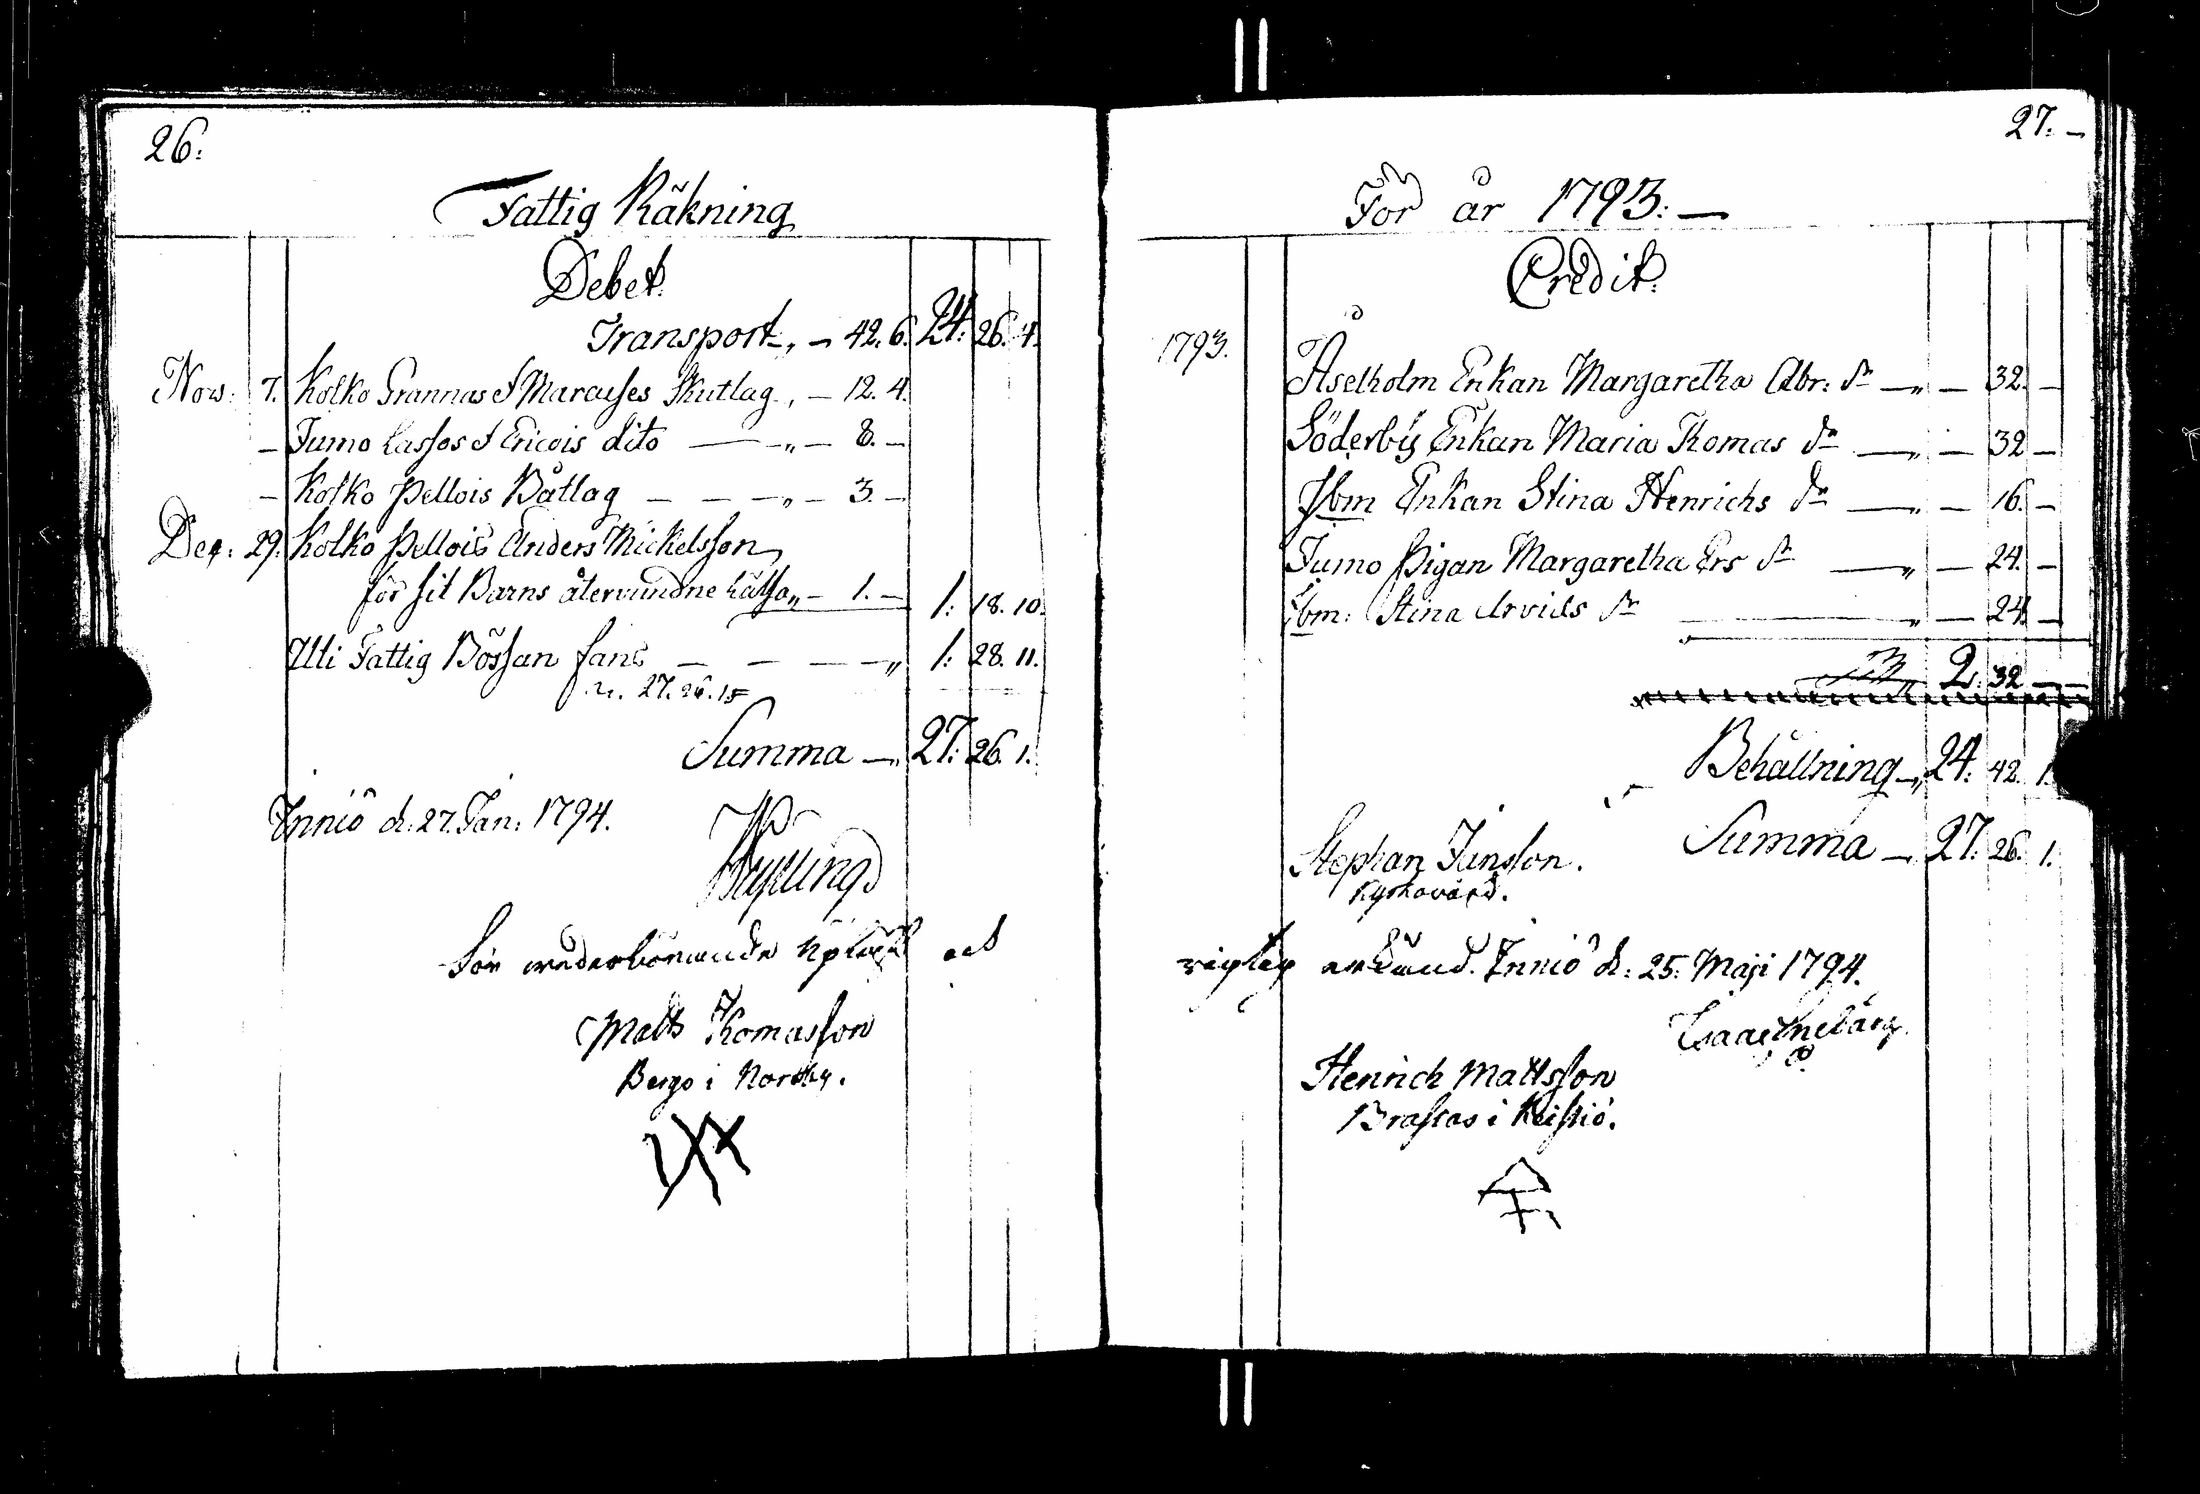 26.
Fattig Räkning
Debet.
Transport „ — 42. 6. 24. 26. 4.
Nov: 7. Kolko Grannas & Marcuses Skutlag „ — 12. 4.
— Jumo Lassos & Ericois dito — „ — 8. —
— Kolko Pellois Båtlag — — — „ — 3. —
Dec: 29. Kolko Pellois Anders Mickelsson
för sit Barns återvundne hälsa „ — 1. — 1: 18. 10.
Uti Fattig Bössan fans — — — „ 1: 28. 11.
27. 26. 1
Summa — „ 27: 26. 1.
Iniö d: 27. Jan: 1794.
och
Matts Thomasson
Bergo i Norrby.
27. —
För år 1793: —
Credit.
1793. Åselholm Enkan Margaretha Abr: dr — „ — 32. —
Söderby Enkan Maria Thomas dr — „ — 32 —
Ibm Enkan Stina Henrichs dr — „ — 16. —
Jumo Pigan Margaretha Ers dr — „ — 24. —
Ibm: Stina Arvids dr — „ — 24. —
2. 32 —
Behållning — „ 24. 42. 1.
Summa — 27. 26. 1.
Stephan Jansson.
Kyrkovärd.
riktig erkänd. Iniö d: 25. Maji 1794.
Henrich Mattsson
Brastas i Keistiö.